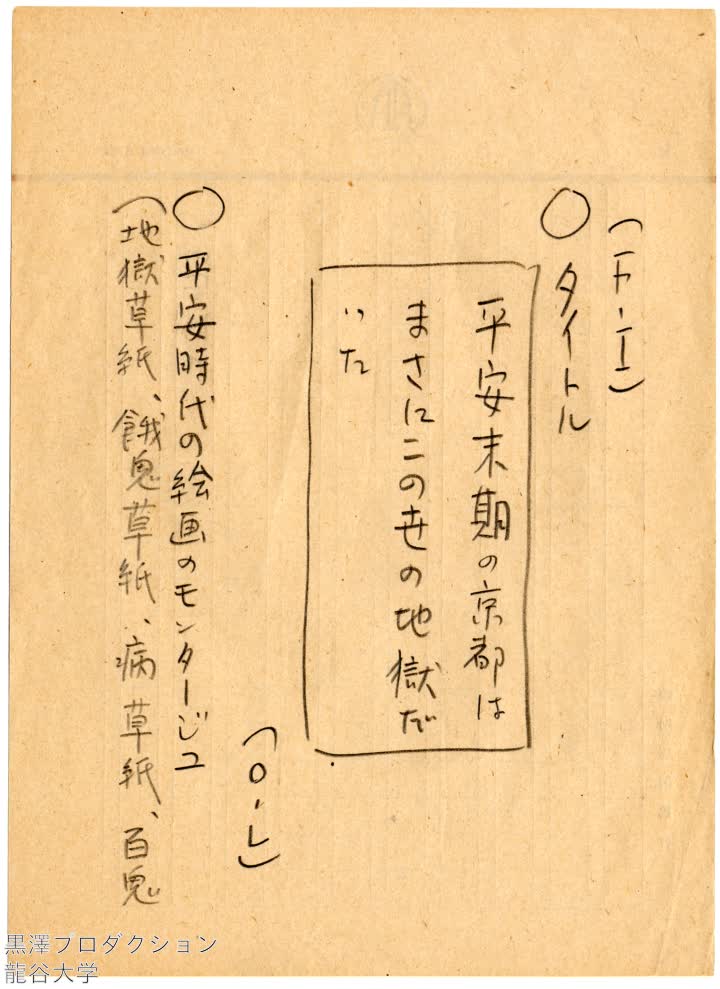 (F・I)
○ タイトル
平安末期の京都は
まさにこの世の地獄だ
った
(O・L)
○ 平安時代の絵画のモンタージュ
(地獄草紙、餓鬼草紙、病草紙、百鬼
黒澤プロダクション
龍谷大学